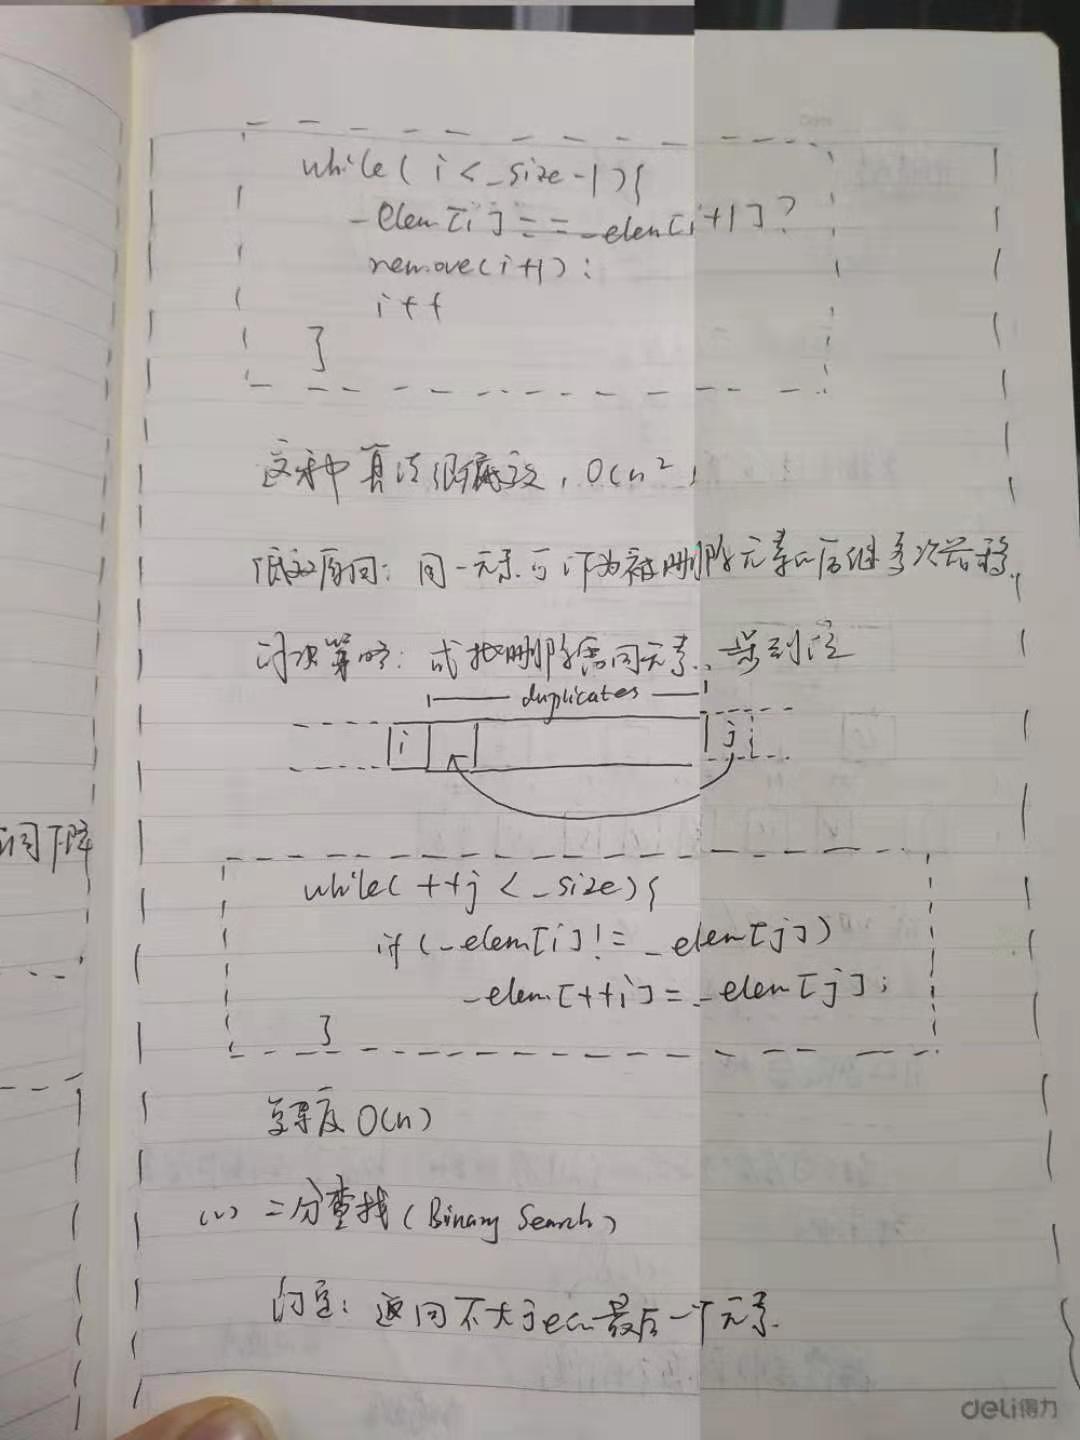 while( i < _size -1 ){
_elem[i] == _elem[i+1] ?
remove(i+1) :
i++
}
这种算法很低效，O(n²)
低效原因：同一元素可作为被删除元素的后继多次前移.
解决策略：成批删除雷同元素.
duplicates
i j
间下降
while( ++j < _size ){
if ( _elem[i] != _elem[j] )
_elem[++i] = _elem[j] ;
}
复杂度 O(n)
二分查找 ( Binary Search )
约定：返回不大于e的最后一个元素.
deli得力